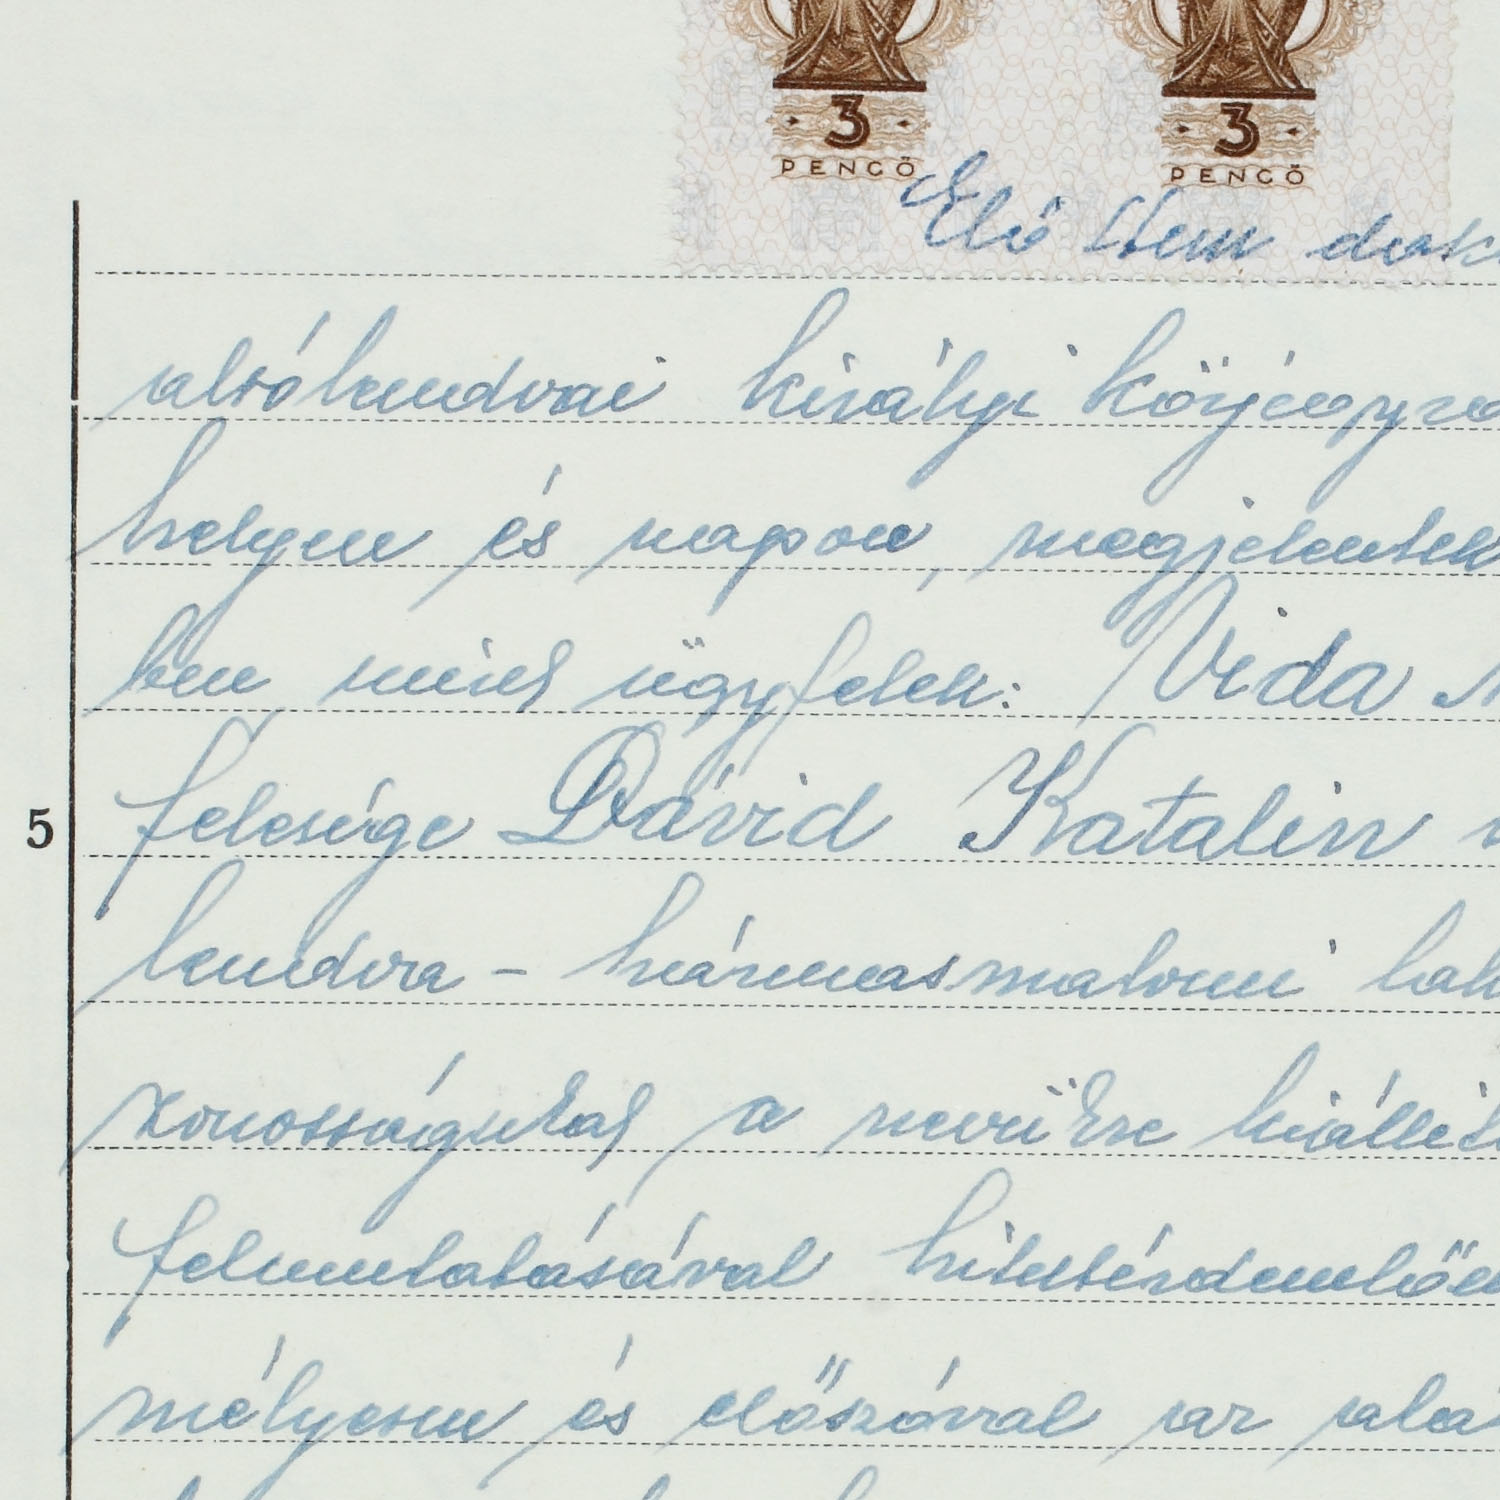 3 3
PENGŐ PENGŐ
Elő ttem dok
alsólendvai királyi közjegyző
helyen és napon, megjelentek
ben mint ügyfelek: Vida
felesége Dávid Katalin
5
lendva - hármasmalomi lak
zonosságukat a nevükre kiállít
felmutatásával hitelérdemlően
mélyesen és előszóval az alá